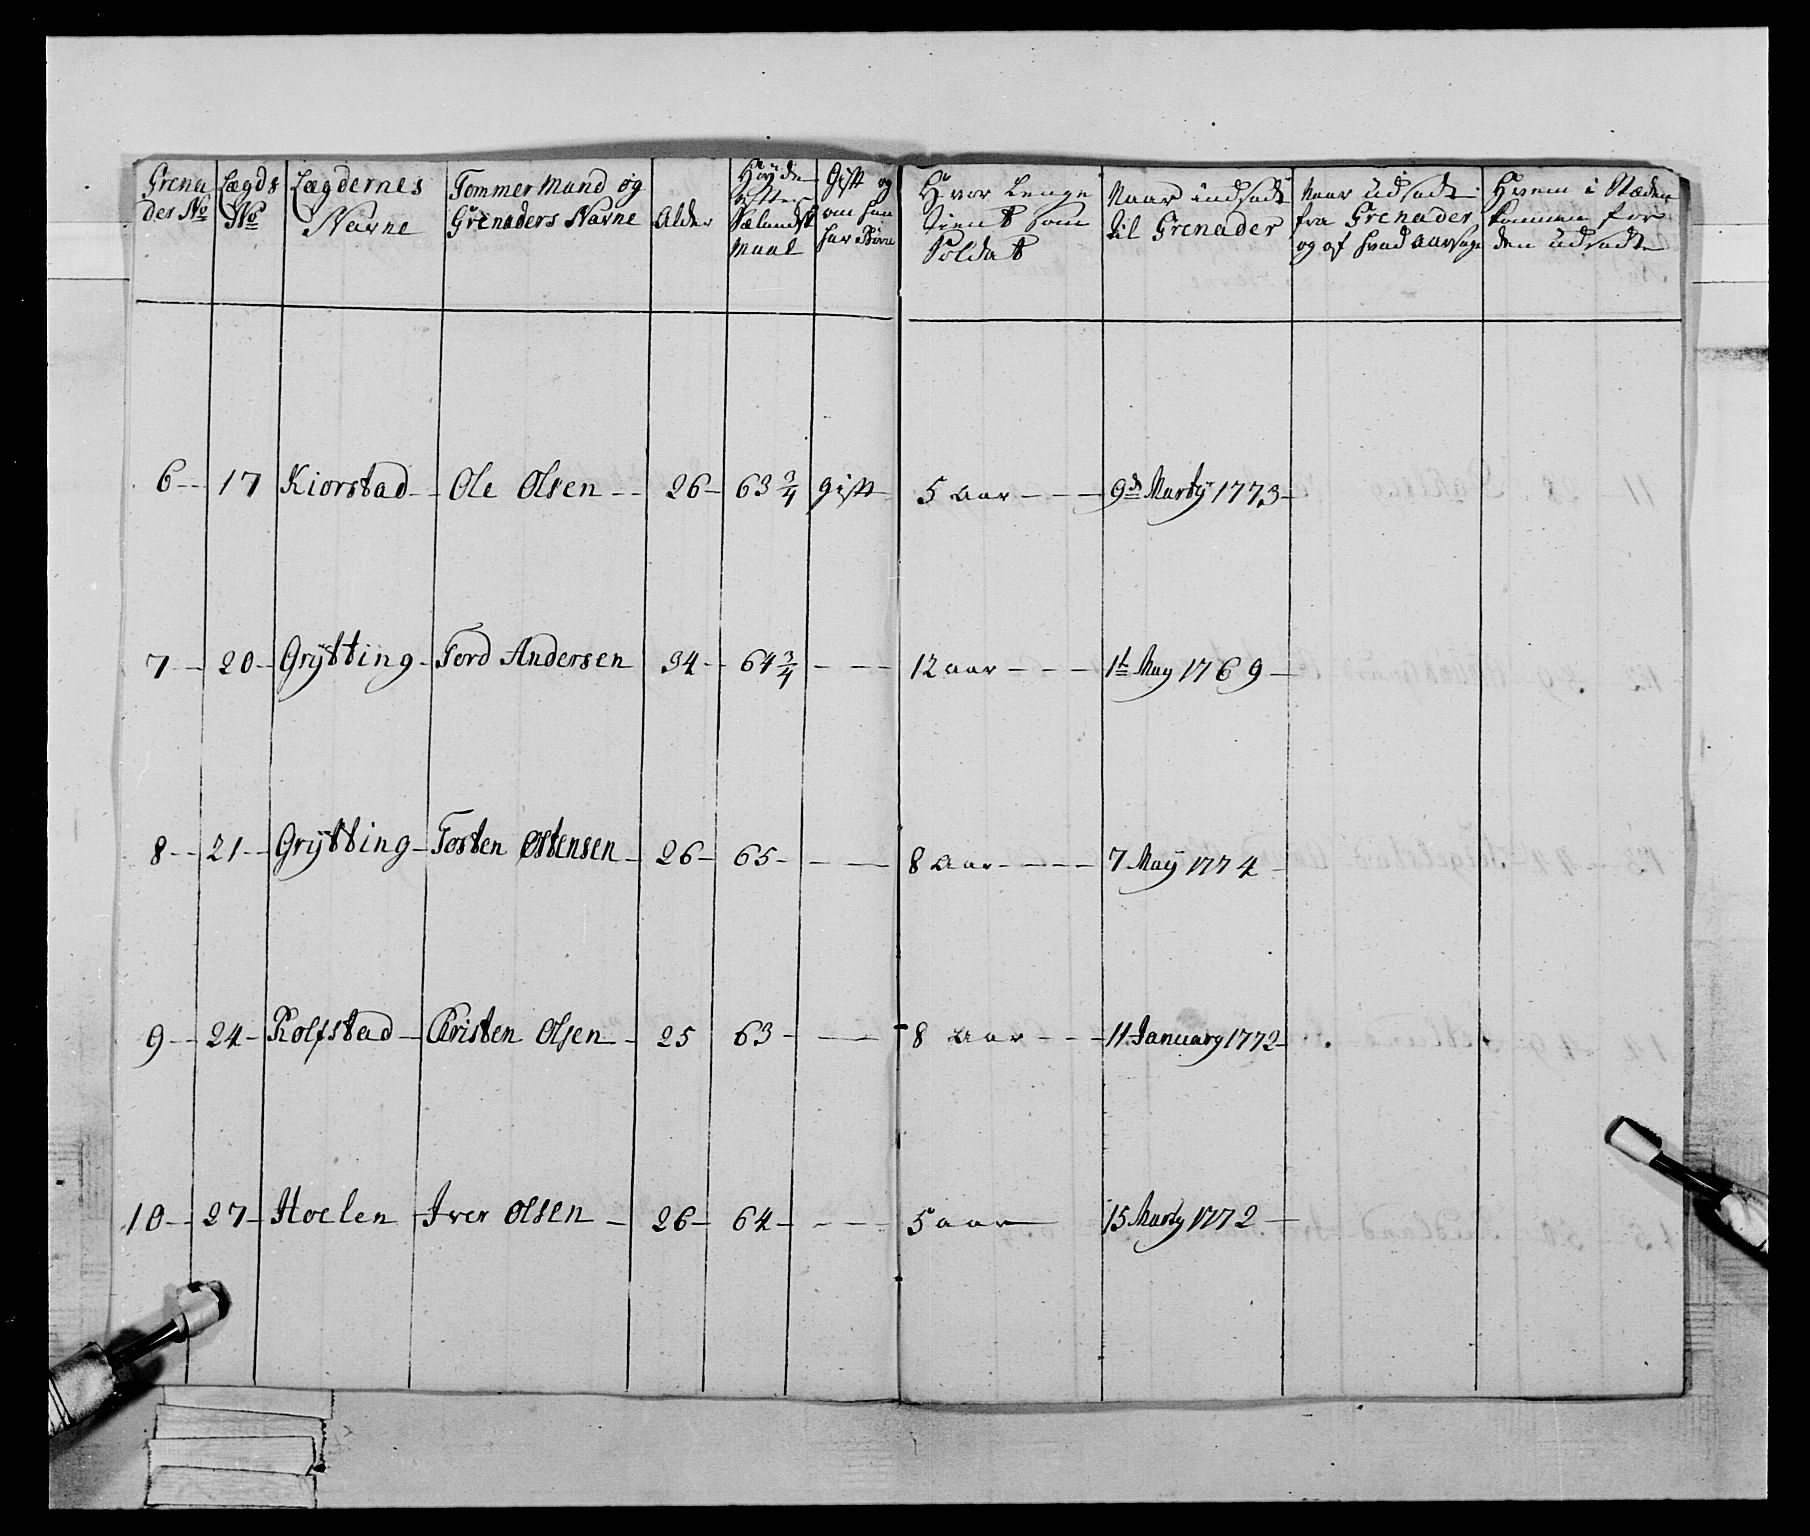 Grena
der No
Lægds
No
Lægdernes
Navne
Tømmer Mænd og
Grenaders Navne
Alder
Høyde
efter
Sælandsk
Maal
Gift og
om han
har Børn
Hvor Lenge
tient som
Soldat
Naar indsadt
til Grenader
Naar Udsadt
fra Grenader
og af hvad Aarsage
Hvem i Stæden
kommen for
den Udsadte
6 -- 17 Kiorstad -- Ole Olsen -- 26 - 63 3/4 gift 5 aar - - - 9de Marty 1773 -
7 -- 20 - Grÿtting - Tord Andersen 34 - 64 3/4 - - - 12 aar - - - 1t May 1769 -
8 -- 21 -- Grÿtting - Tosten Østensen - 26 - 65 - - - 8 Aar - - - 7 Maÿ 1774 -
9 -- 24 - Rolfstad - Christen Olsen - 25 63 - - - 8 Aar - - - 11 January 1772 -
10 -- 27 - Hoelen - Iver Olsen - 26 - 64 - - - 5 aar - 15 Marty 1772 -